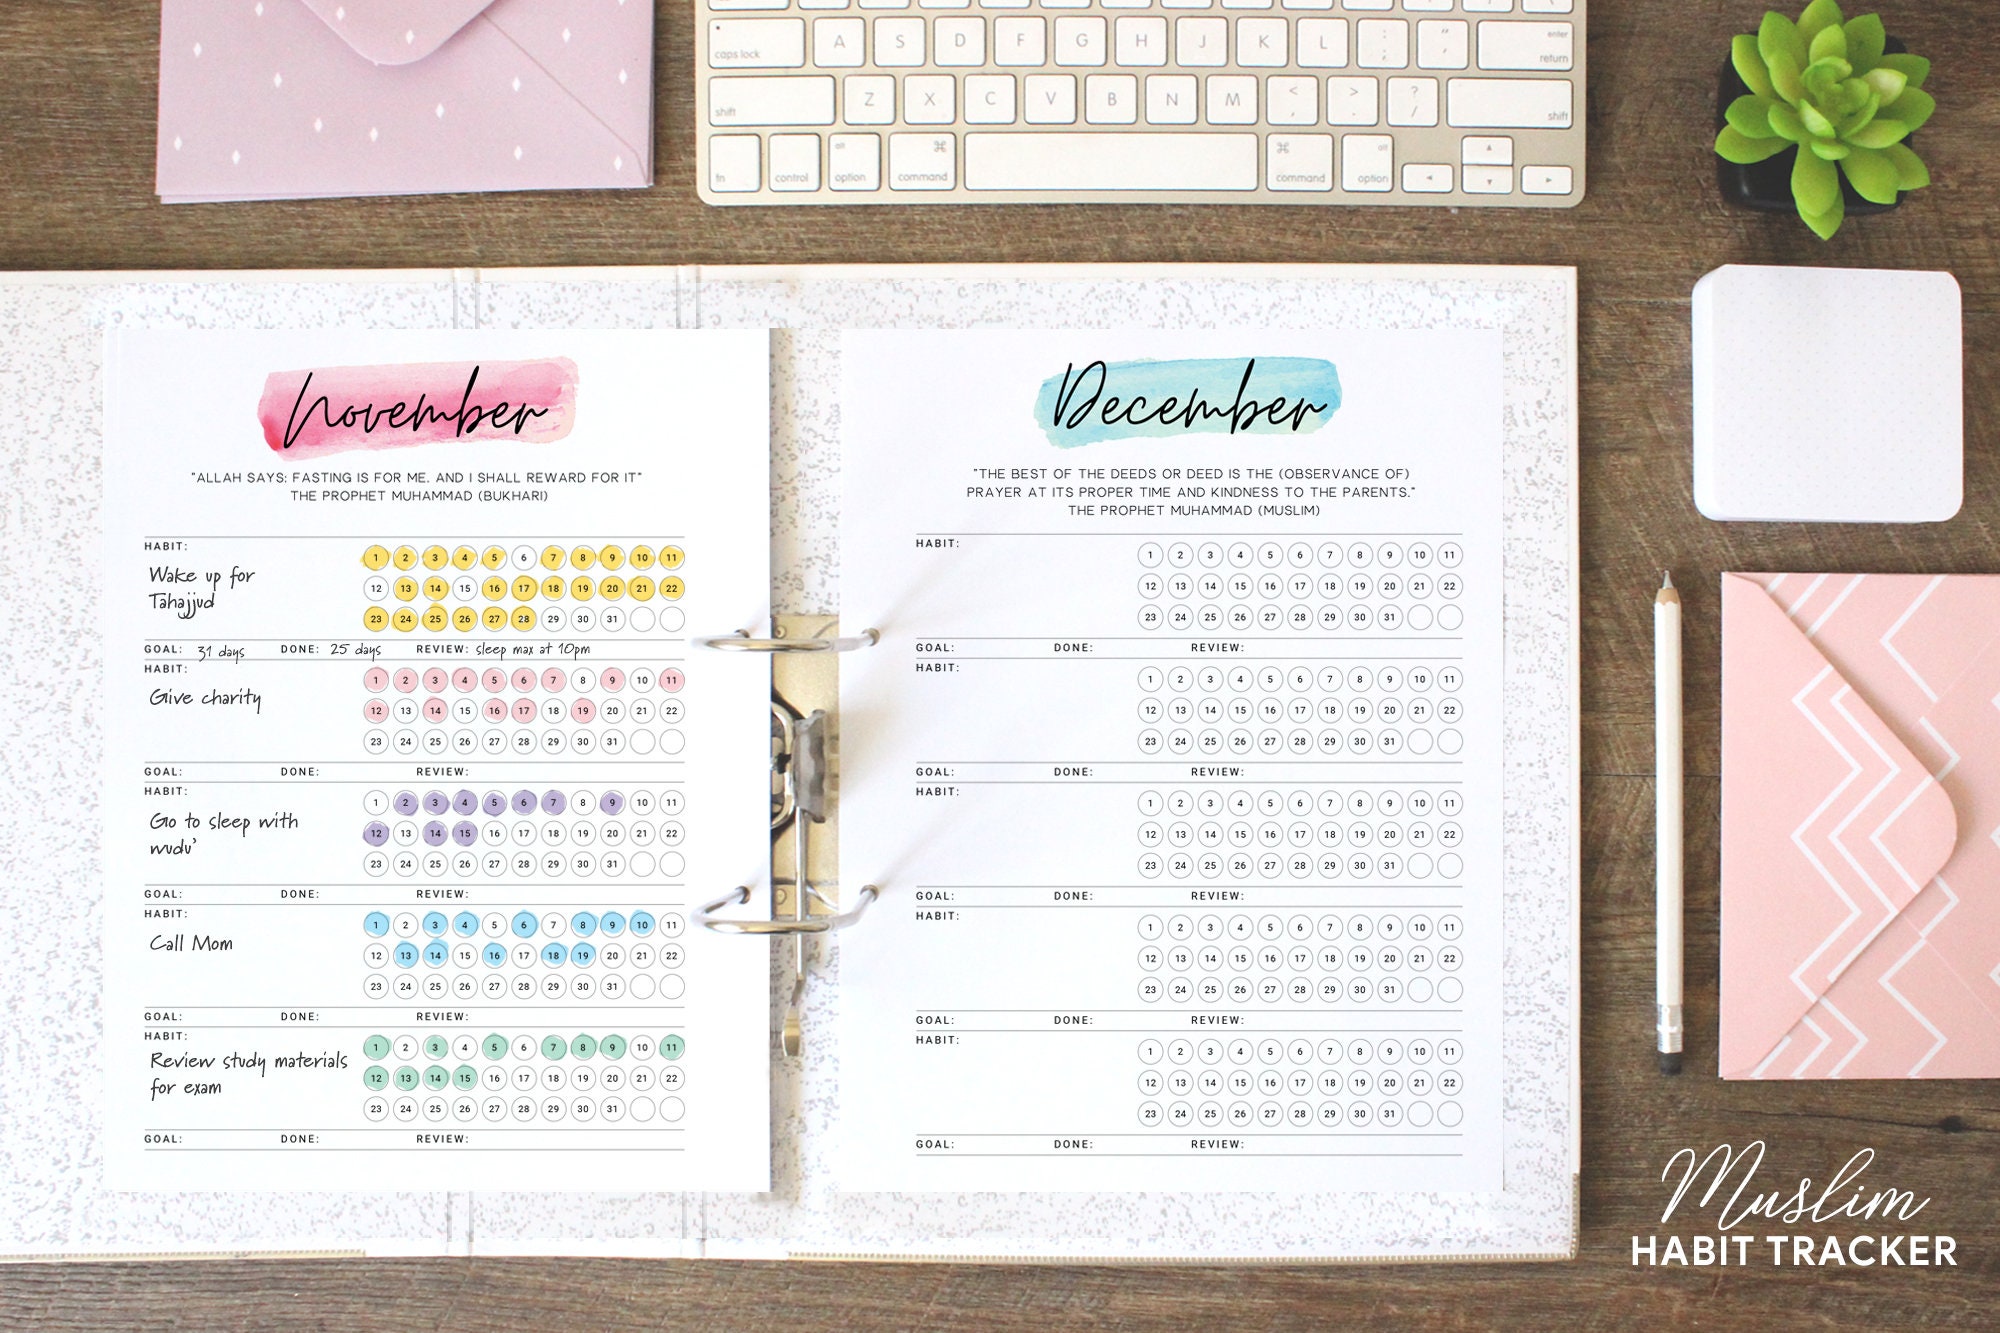 caps lock A S D F G H J K L : ; " ' enter return
shift Z X C V B N M < , > . ? / shift
fn control alt option ⌘ command ⌘ command alt option
November
"ALLAH SAYS: FASTING IS FOR ME. AND I SHALL REWARD FOR IT"
THE PROPHET MUHAMMAD (BUKHARI)
HABIT:
Wake up for
Tahajjud
1 2 3 4 5 6 7 8 9 10 11
12 13 14 15 16 17 18 19 20 21 22
23 24 25 26 27 28 29 30 31
GOAL: 31 days DONE: 25 days REVIEW: sleep max at 10pm
HABIT:
Give charity
1 2 3 4 5 6 7 8 9 10 11
12 13 14 15 16 17 18 19 20 21 22
23 24 25 26 27 28 29 30 31
GOAL: DONE: REVIEW:
HABIT:
Go to sleep with
wudu'
1 2 3 4 5 6 7 8 9 10 11
12 13 14 15 16 17 18 19 20 21 22
23 24 25 26 27 28 29 30 31
GOAL: DONE: REVIEW:
HABIT:
Call Mom
1 2 3 4 5 6 7 8 9 10 11
12 13 14 15 16 17 18 19 20 21 22
23 24 25 26 27 28 29 30 31
GOAL: DONE: REVIEW:
HABIT:
Review study materials
for exam
1 2 3 4 5 6 7 8 9 10 11
12 13 14 15 16 17 18 19 20 21 22
23 24 25 26 27 28 29 30 31
GOAL: DONE: REVIEW:
December
"THE BEST OF THE DEEDS OR DEED IS THE (OBSERVANCE OF)
PRAYER AT ITS PROPER TIME AND KINDNESS TO THE PARENTS."
THE PROPHET MUHAMMAD (MUSLIM)
HABIT:
1 2 3 4 5 6 7 8 9 10 11
12 13 14 15 16 17 18 19 20 21 22
23 24 25 26 27 28 29 30 31
GOAL: DONE: REVIEW:
HABIT:
1 2 3 4 5 6 7 8 9 10 11
12 13 14 15 16 17 18 19 20 21 22
23 24 25 26 27 28 29 30 31
GOAL: DONE: REVIEW:
HABIT:
1 2 3 4 5 6 7 8 9 10 11
12 13 14 15 16 17 18 19 20 21 22
23 24 25 26 27 28 29 30 31
GOAL: DONE: REVIEW:
HABIT:
1 2 3 4 5 6 7 8 9 10 11
12 13 14 15 16 17 18 19 20 21 22
23 24 25 26 27 28 29 30 31
GOAL: DONE: REVIEW:
HABIT:
1 2 3 4 5 6 7 8 9 10 11
12 13 14 15 16 17 18 19 20 21 22
23 24 25 26 27 28 29 30 31
GOAL: DONE: REVIEW:
Muslim
HABIT TRACKER